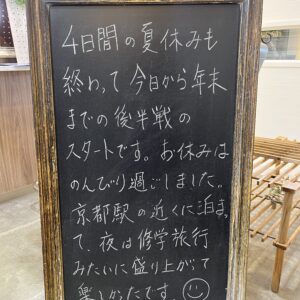 4日間の夏休みも
終わって今日から年末
までの後半戦の
スタートです。お休みは
のんびり過ごしました。
京都駅の近くに泊まっ
て、夜は修学旅行
みたいに盛り上がって
楽しかったです